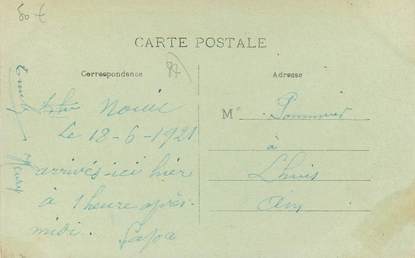 50 €
CARTE POSTALE
Correspondance
Adresse
Le 18-6-1921
arrivés ici hier
à 1 heure après-
midi.
Papa
M
Pommier
à
Lhuis
Ain